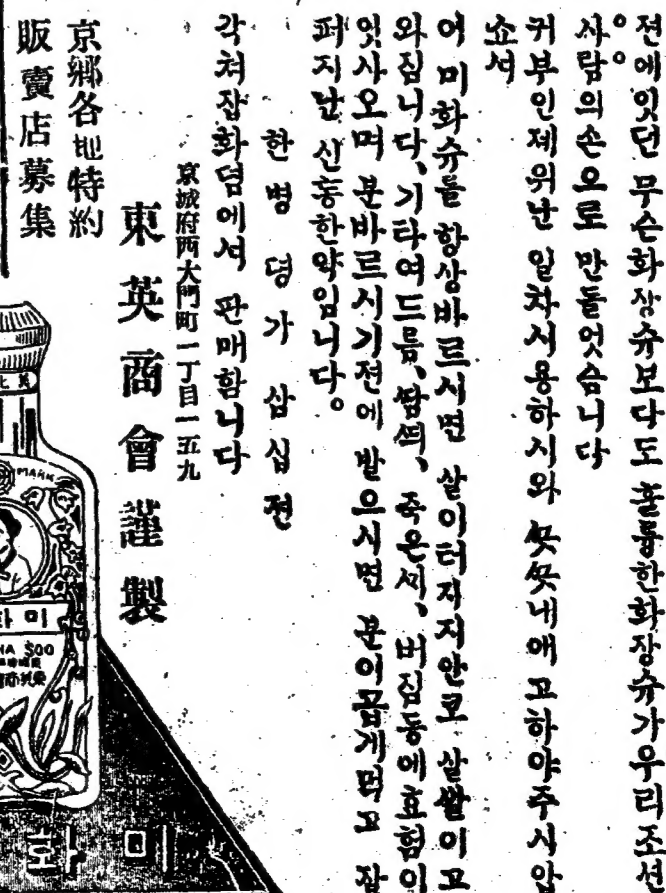 전에잇던 무슨화장슈보다도 훌륭한화장슈가우리조선
사람의손으로 만들엇슴니다
귀부인제위난 일차시용하시와 끗끗내애고하야주시압
쇼셔
이 미화슈를 항상바르시면 살이터지지안코 살빗이고
와짐니다、기타여드름、땀띄、죽은씨、버짐등에효험이
잇사오며 분바르시기전에 발으시면 분이곱게먹고 잘
퍼지난 신통한약입니다。
한병 뎡가 삼십젼
각쳐잡화뎜에셔 판매함니다
京城府西大門町一丁目一五九
東英商會謹製
京鄉各地特約
販賣店募集
MARK
미
SOO
미화